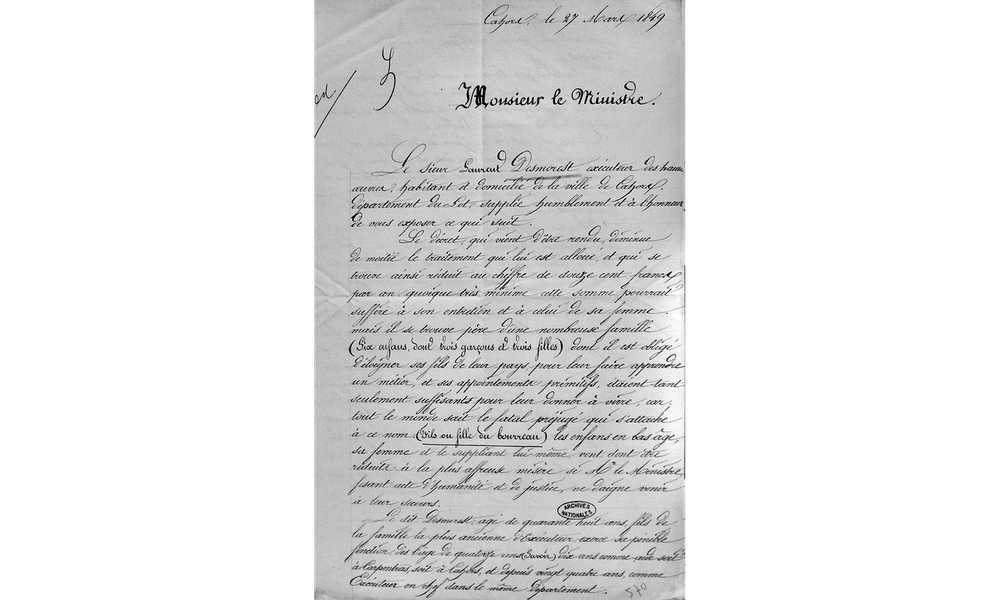 Cahors, le 27 Mars 1849
Monsieur le Ministre.
Le sieur Laurent Desmorest exécuteur des hautes
œuvres, habitant et domicilié de la ville de Cahors,
département du Lot, supplie humblement et à l'honneur
de vous exposer ce qui suit.
Le décret, qui vient d'être rendu, diminue
de moitié le traitement qui lui est alloué, et qui se
trouve ainsi réduit au chiffre de douze cent francs
par an quoique très minime cette somme pourrait
suffire à son entretien et à celui de sa femme.
mais il se trouve père d'une nombreuse famille
(Six enfans, dont trois garçons et trois filles) dont il est obligé
d'éloigner ses fils de leur pays, pour leur faire apprendre
un métier, et ses appointements primitifs, étaient tant
seulement suffisants pour leur donner à vivre, car
tout le monde sait le fatal préjugé qui s'attache
à ce nom (fils ou fille du bourreau) les enfans en bas âge,
sa femme et le suppliant lui même, vont dont être
réduits à la plus affreuse misère si Mr le Ministre,
fesant acte d'humanité et de justice, ne daigne venir
à leur secours.
Le dit Desmorest, agé de quarante huit ans, fils de
la famille la plus ancienne d'Exécuteur exerce sa pénible
fonction dès l'âge de quatorze ans (Savoir) dix ans comme aide soit
à Carpentras, soit à Cahors, et depuis vingt quatre ans, comme
Exécuteur en chef dans le même département.
ARCHIVES
NATIONALES
570